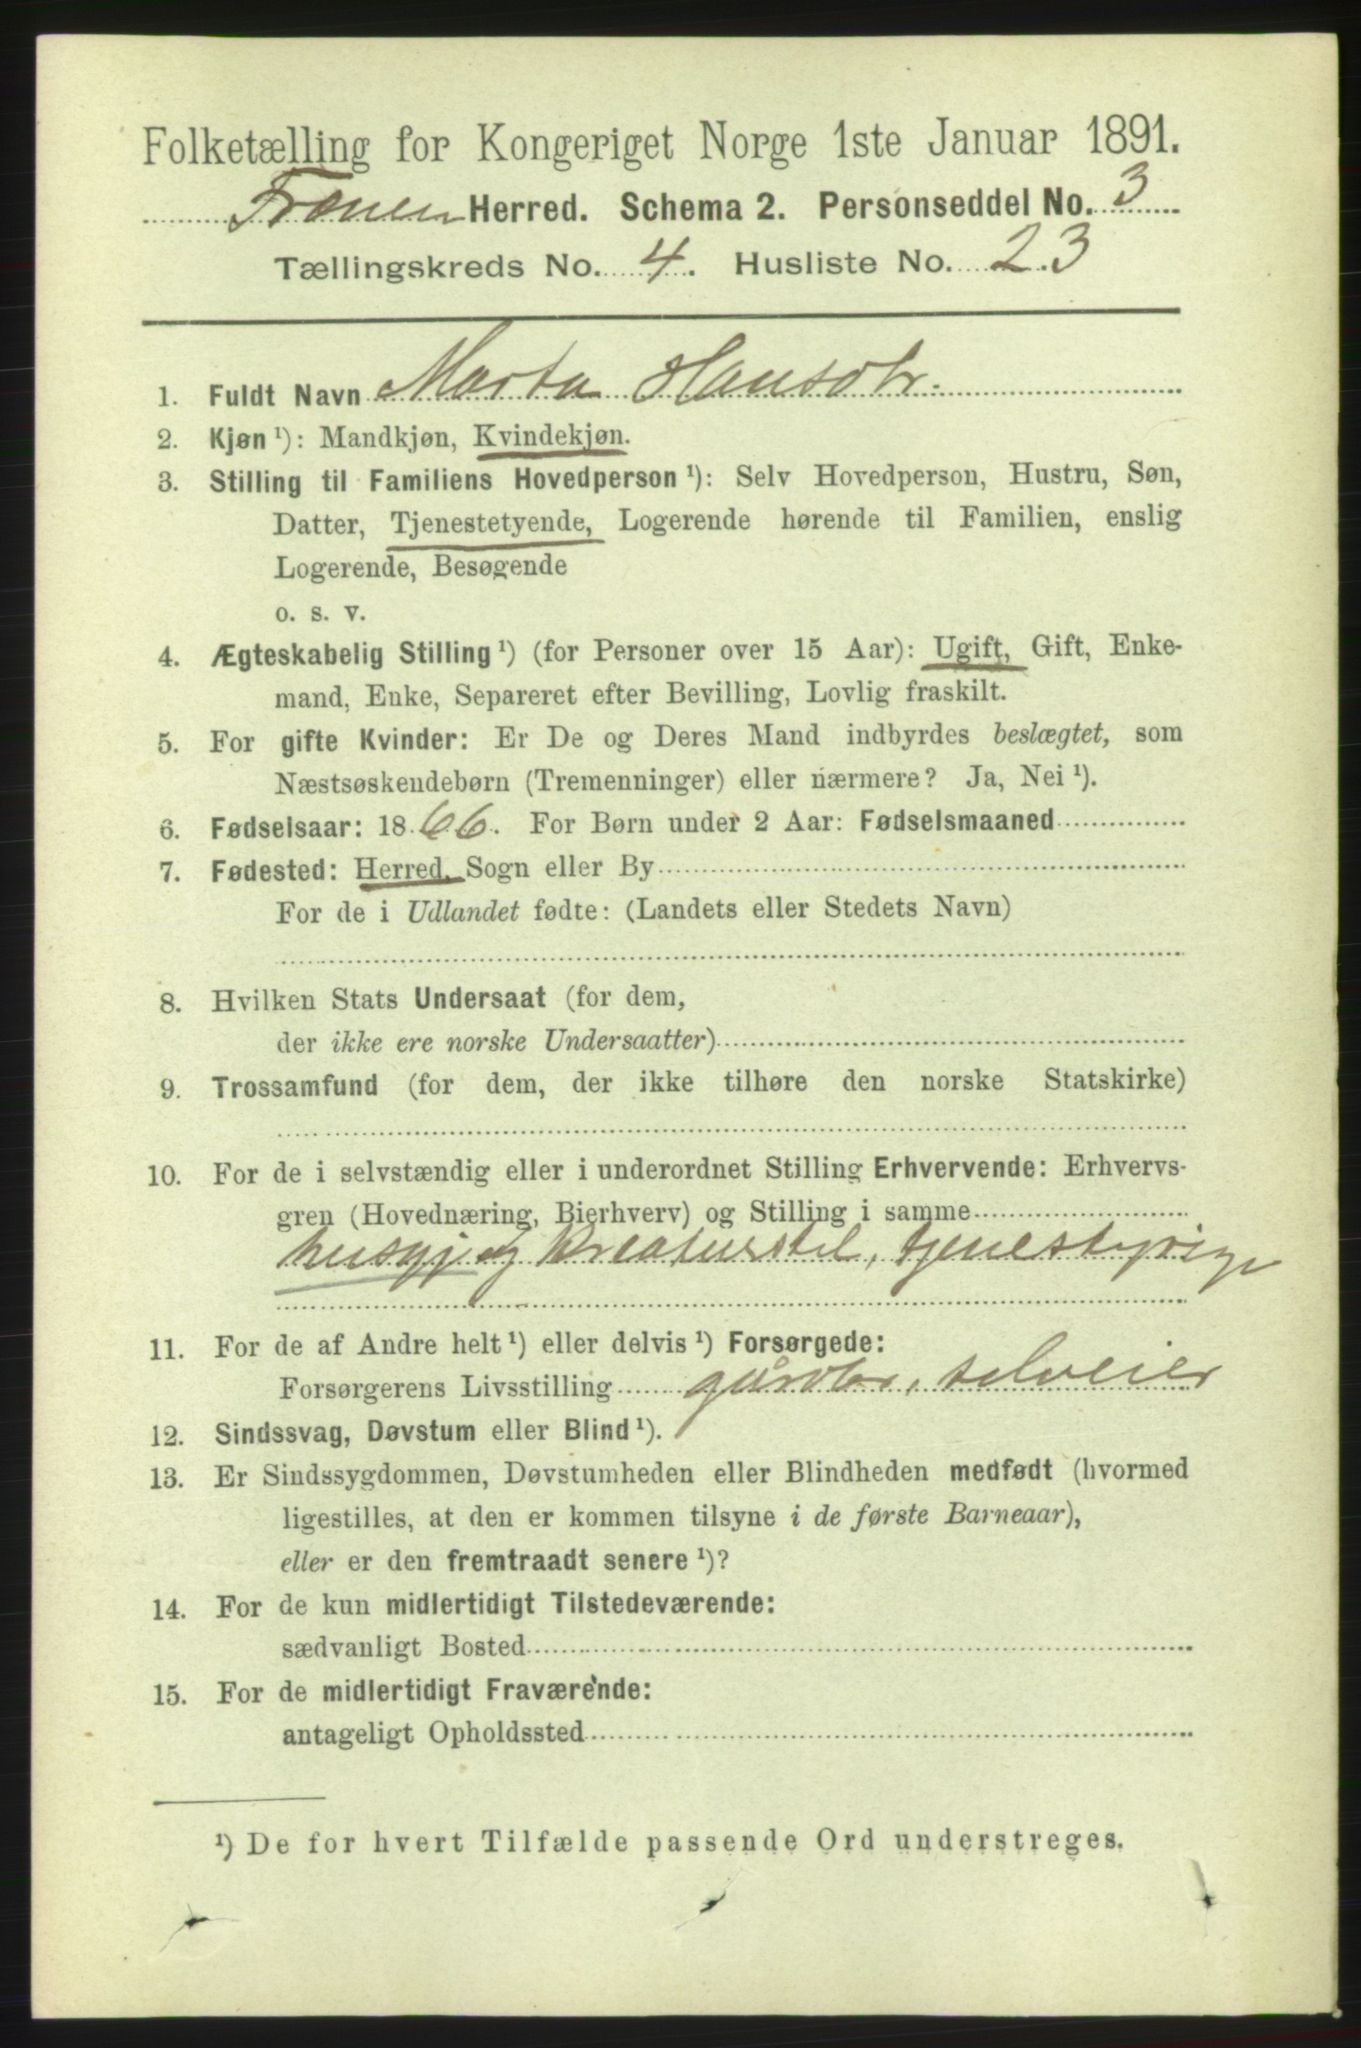 Folketælling for Kongeriget Norge 1ste Januar 1891.
Frænen Herred. Schema 2. Personseddel No. 3
Tællingskreds No. 4. Husliste No. 23
1. Fuldt Navn Marta Hansdtr.
2. Kjøn ¹): Mandkjøn, Kvindekjøn.
3. Stilling til Familiens Hovedperson ¹): Selv Hovedperson, Hustru, Søn,
Datter, Tjenestetyende, Logerende hørende til Familien, enslig
Logerende, Besøgende
o. s. v.
4. Ægteskabelig Stilling ¹) (for Personer over 15 Aar): Ugift, Gift, Enke-
mand, Enke, Separeret efter Bevilling, Lovlig fraskilt.
5. For gifte Kvinder: Er De og Deres Mand indbyrdes beslægtet, som
Næstsøskendebørn (Tremenninger) eller nærmere? Ja, Nei ¹).
6. Fødselsaar: 1866. For Børn under 2 Aar: Fødselsmaaned
7. Fødested: Herred, Sogn eller By
For de i Udlandet fødte: (Landets eller Stedets Navn)
8. Hvilken Stats Undersaat (for dem,
der ikke ere norske Undersaatter)
9. Trossamfund (for dem, der ikke tilhøre den norske Statskirke)
10. For de i selvstændig eller i underordnet Stilling Erhvervende: Erhvervs-
gren (Hovednæring, Bierhverv) og Stilling i samme
husgj og Kreaturstel, tjenestepige
11. For de af Andre helt ¹) eller delvis ¹) Forsørgede:
Forsørgerens Livsstilling gårdbr, selveier
12. Sindssvag, Døvstum eller Blind ¹).
13. Er Sindssygdommen, Døvstumheden eller Blindheden medfødt (hvormed
ligestilles, at den er kommen tilsyne i de første Barneaar),
eller er den fremtraadt senere ¹)?
14. For de kun midlertidigt Tilstedeværende:
sædvanligt Bosted
15. For de midlertidigt Fraværende:
antageligt Opholdssted
¹) De for hvert Tilfælde passende Ord understreges.